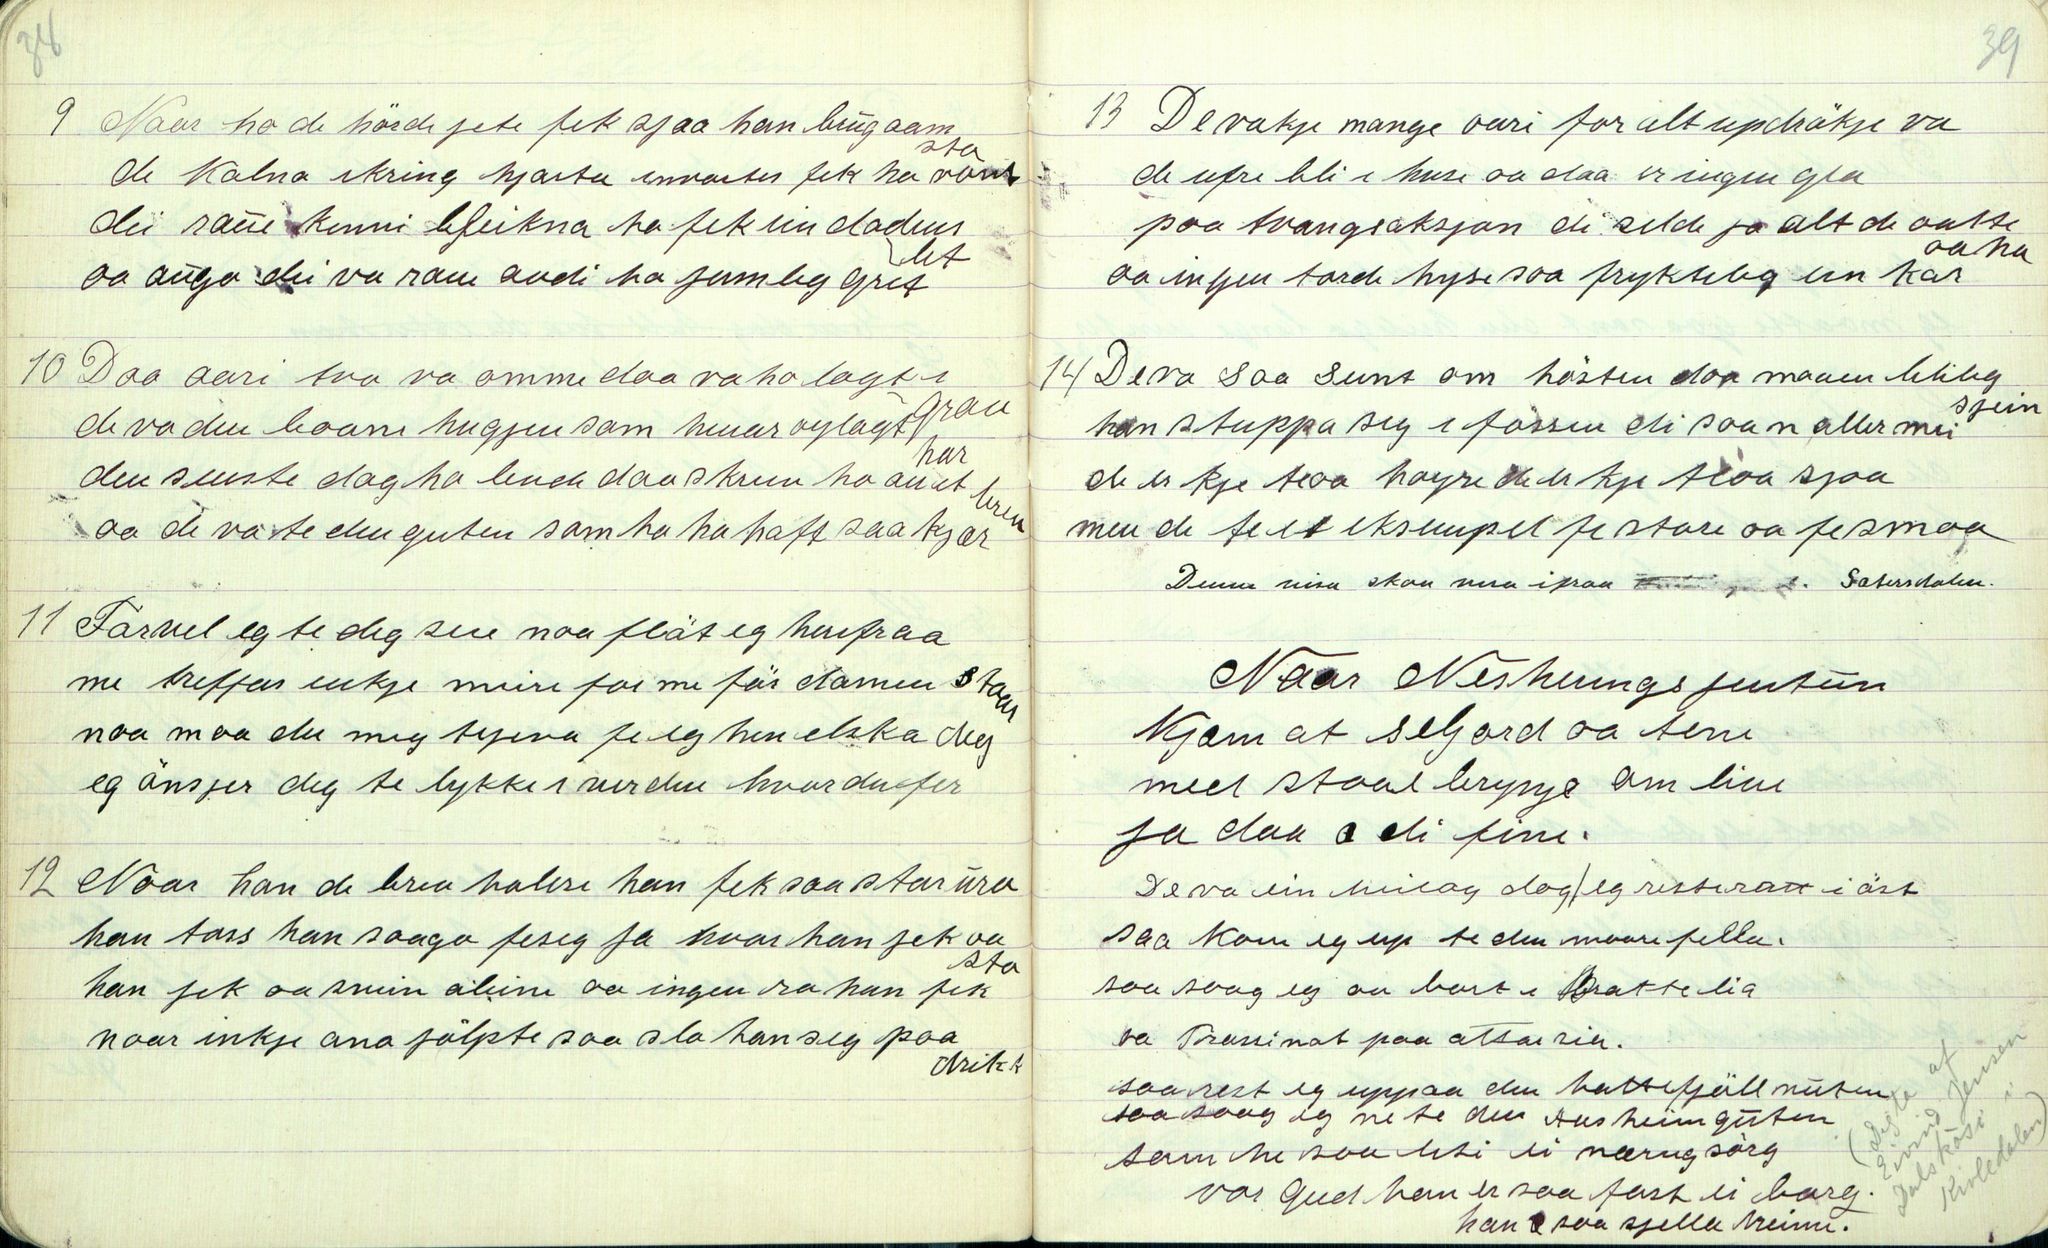 38
9 Naar ho de hörde jete fek sjaa han beug aam
de kalna ikring hjarta invartes fek ho vont sta
dei raue kenni bleikna ho fek ein dodens let
oa augo dei va raue aodi ho jamleg gret
10 Daa aari tvo va omme daa va ho lagt i grau
de va den boane hugjen som henar öylagt har
den seuste dag ho levde daa skreiv ho ait et brev
oa de va te den guten som ho ha haft saa kjær
11 Farvel eg te deg seie noa flöt eg henfraa
me treffas inkje meire for me för domen staar
noa moa du meg tejeva fe eg hev elska deg
eg önsjer deg te lykke i verden hvor du fer
12 Naar han de brev ha lese han fek saa stor ūro
han tass han soago fe seg ja hvor han jek oa sta
han jek oa svein aleine oa ingen ro han fek
naar inkje ana jölpte saa slo han seg paa drikk
39
13 De va kje mange oari for alt updrökje va
de ufre blei i huse oa daa er ingen gla
paa tvangsaksjon di selde jo alt de oatte oa ha
oa ingen torde hyse saa frykteleg ein kar
14 De va saa seint om hösten daa maanen bleileg sjein
han stuppa seg i fossen di saa n aller mei
de er kje te oa höyre de er kje te oa sjoa
men de fe et eksempel fe store oa fe smoa
Denne visa skoa vera ifraa Setersdalen.
Naar Nesherings jentūn
Kjem at Seljord oa tene
med staal brynje om live
ja daa e di fine.
De va ein heilag dag eg reiste i öst
saa kom eg up te den moore fella.
saa saag eg oa bort i Brattelia
va Trassinot paa
saa rest eg uppaa den hattefjöll nūten
saa saag eg ne te den Aasheim gūten
som he saa lisi ei nærug sörg
vor Gud han er saa fast ei borg.
han e saa sjella heime.
(Digta af
Eivind Jensen
Dalskösi i
Kivledalen)